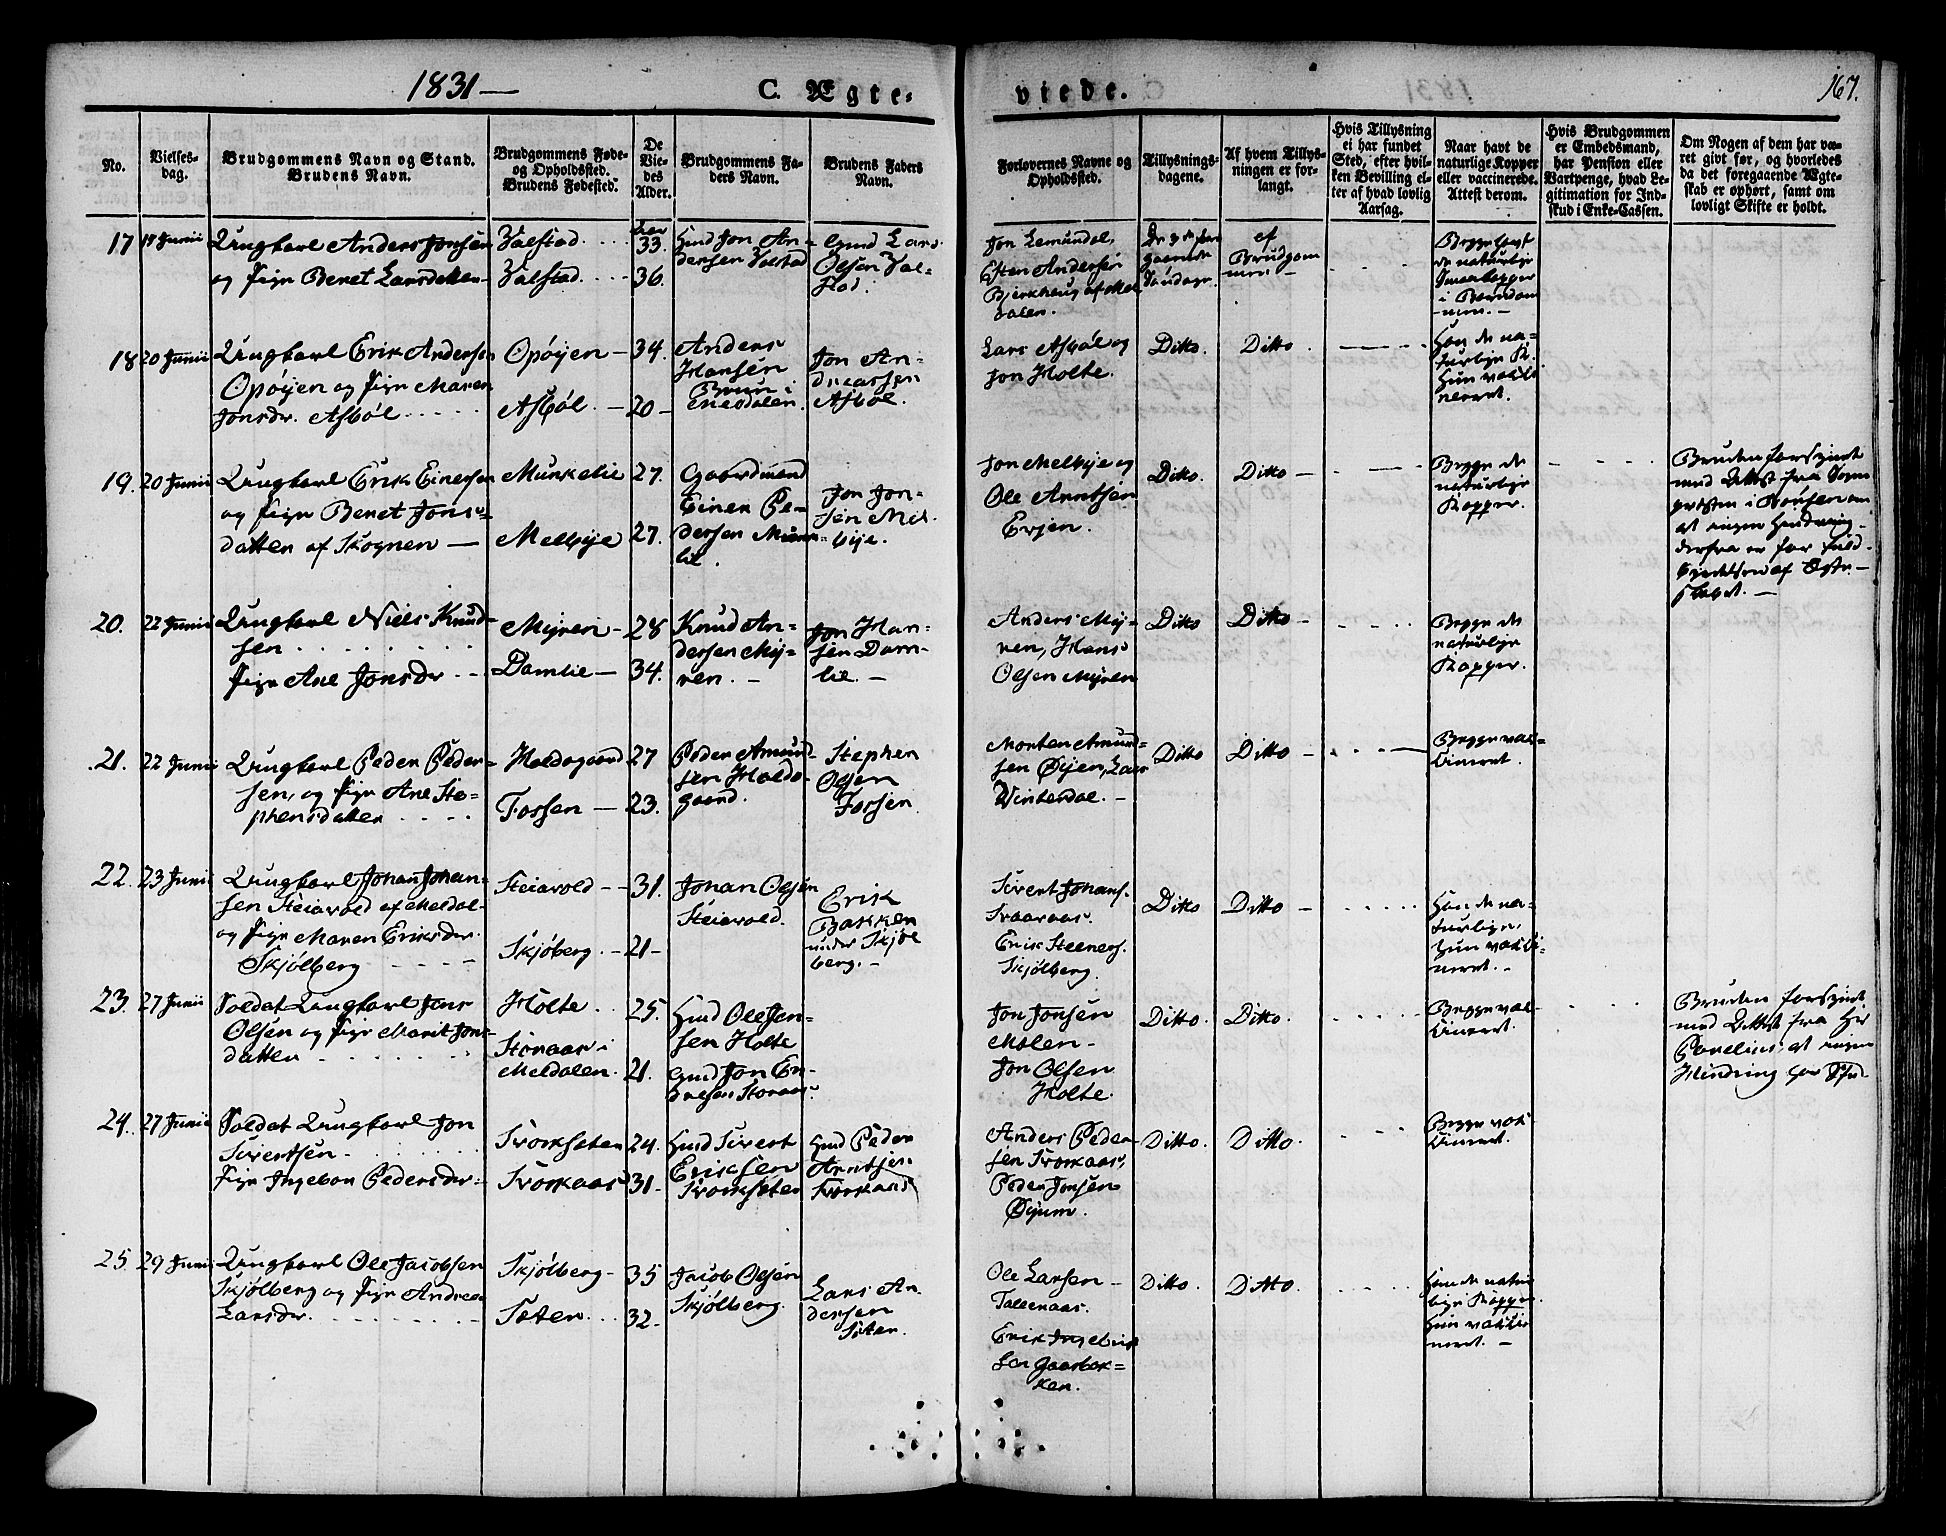 1831 —
C. Ægte-
viede.
167.
No.
Vielses-
dag.
Brudgommens Navn og Stand.
Brudens Navn.
Brudgommens Føde-
og Opholdssted.
Brudens Fødested.
De
Vie-
des
Alder.
Brudgommens Fa-
ders Navn.
Brudens Faders
Navn.
Forlovernes Navne og
Opholdssted.
Tillysnings-
dagene.
Af hvem Tillys-
ningen er for-
langt.
Hvis Tillysning
ei har fundet
Sted, efter hvil-
ken Bevilling el-
ler af hvad lovlig
Aarsag.
Naar havt de
naturlige Kopper
eller vaccinerede.
Attest derom.
Hvis Brudgommen
er Embedsmand,
har Pension eller
Vartpenge, hvad Le-
gitimation for Ind-
skud i Enke-Cassen.
Om Nogen af dem har væ-
ret givt før, og hvorledes
da det foregaaende Ægte-
skab er ophørt, samt om
lovligt Skifte er holdt.
17
19 Junii
Ungkarl Anders Jonsen
og Pige Beret Larsdatter
Valstad
Valstad
33.
36.
Gmd Jon An-
dersen Valstad
Gmd Lars
Olsen Val-
stad.
Jon Lemundal,
Esten Andersen
Bjerkhaug af Mel
dalen.
af
Brudgom
men. —
Begge havt
de naturlige
Smaakopper
i Barndom
men. —
18
20 Junii
Ungkarl Erik Andersen
Opøyen og Pige Maren
Jonsdr. Asbøl
Opøyen —
Asbøl. —
34.
20 —
Anders
Hansen
Bruun i
Jon An-
dreassen
Asbøl.
Lars Asbøl og
Jon Holte.
Ditto.
Ditto
Han de na-
turlige K.
Hun vakci
neret.
19.
20 Junii
Ungkarl Erik Einersen
og Pige Beret Jons-
datter af Skognen —
Munkelie
Melbye
27.
27.
Gaardmand
Einer Pe-
dersen Munke-
lie.
Jon Jon-
sen Mel-
bye.
Jon Melbye og
Ole Arntsen
Evjen.
Ditto.
Ditto —
Begge de
naturlige
Kopper.
Bruden forsynet
med Attest fra Sogne
præsten i Skognen om
at ingen Hindring
derfra er for fuld-
byrdelsen af Ægte-
skabet. —
20.
22 Junii
Ungkarl Niels Knud-
sen
Pige Ane Jonsdr
Myren —
Damlie —
28
34.
Knud An-
dersen My-
ren. —
Jon Han-
sen Dam-
lie. —
Anders My-
ren, Hans
Olsen Myren
Ditto
Ditto —
Begge de
naturlige
Kopper.
21.
22 Junii
Ungkarl Peder Peder-
sen, og Pige Ane Ste-
phensdatter
Holdagaard
Fossen —
27
23.
Peder Amund-
sen Holda-
gaard.
Stephen
Olsen
Fossen
Morten Amund-
sen Øyen, Lars
Vinterdal. —
Ditto
Ditto —
Begge vak-
cineret.
22.
23 Junii
Ungkarl Johan Johan-
sen Steiavold af Meldal-
og Pige Maren Eriksdr.
Skjølberg
Steiavold —
Skjøberg. —
31.
21 —
Johan Olsen
Steiavold.
Erik
Bakken
under Skjøl
berg. —
Sivert Johans.
Svaaraas.
Erik Steeners.
Skjølberg.
Ditto
Ditto —
Han de na-
turlige,
Hun vakci-
neret. —
23.
27 Junii
Soldat Ungkarl Jens
Olsen og Pige Marit Jons-
datter
Holte.
Storaas i
Meldalen.
25.
21.
Gmd Ole Jen-
sen Holte
Gmd Jon En-
dresen Storaas.
Jon Jonsen
Molen —
Jon Olsen
Holte.
Ditto.
Ditto.
Begge vak-
cineret.
Bruden forsynet
med Attest fra Hr
at ingen
Hindring har
24.
27 Junii
Soldat Ungkarl Jon
Sivertsen.
Pige Ingebor Pedersdr.
24.
31.
Gmd Sivert
Eriksen
Gmd Peder
Arntsen
Anders Peder-
sen
Peder Jonsen
Øyum.
Ditto.
Ditto.
Begge vak
cineret.
25.
29 Junii
Ungkarl Ole Jacobsen
Skjølberg og Pige Andrea
Larsdr.
Skjølberg —
Solen
35
32 —
Jacob Olsen
Skjølberg.
Lars An-
dersen
Ole Larsen —
Erik Ingebrigt
sen Gaasbak-
ken.
Ditto
Ditto.
Han de natur
lige Kopper.
Hun vakci
neret. —